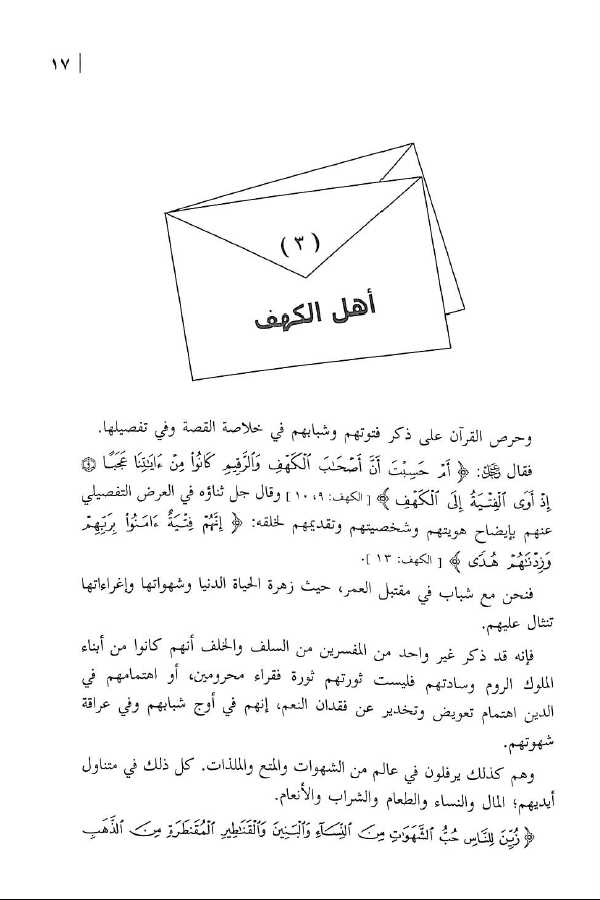 ١٧
(٣)
أهل الكهف
وحرص القرآن على ذكر فتوتهم وشبابهم في خلاصة القصة وفي تفصيلها.
فقال ﷻ: ﴿ أَمْ حَسِبْتَ أَنَّ أَصْحَٰبَ ٱلْكَهْفِ وَٱلرَّقِيمِ كَانُوا۟ مِنْ ءَايَٰتِنَا عَجَبًا ۝٩
إِذْ أَوَى ٱلْفِتْيَةُ إِلَى ٱلْكَهْفِ ﴾ [الكهف: ٩، ١٠] وقال جل ثناؤه في العرض التفصيلي
عنهم بإيضاح هويتهم وشخصيتهم وتقديمهم لخلقه: ﴿ إِنَّهُمْ فِتْيَةٌ ءَامَنُوا۟ بِرَبِّهِمْ
وَزِدْنَٰهُمْ هُدًى ﴾ [الكهف: ١٣].
فنحن مع شباب في مقتبل العمر، حيث زهرة الحياة الدنيا وشهواتها وإغراءاتها
تنثال عليهم.
فإنه قد ذكر غير واحد من المفسرين من السلف والخلف أنهم كانوا من أبناء
الملوك الروم وسادتهم فليست ثورتهم ثورة فقراء محرومين، أو اهتمامهم في
الدين اهتمام تعويض وتخدير عن فقدان النعم، إنهم في أوج شبابهم وفي عراقة
شهوتهم.
وهم كذلك يرفلون في عالم من الشهوات والمتع والملذات. كل ذلك في متناول
أيديهم؛ المال والنساء والطعام والشراب والأنعام.
﴿ زُيِّنَ لِلنَّاسِ حُبُّ ٱلشَّهَوَٰتِ مِنَ ٱلنِّسَآءِ وَٱلْبَنِينَ وَٱلْقَنَٰطِيرِ ٱلْمُقَنطَرَةِ مِنَ ٱلذَّهَبِ